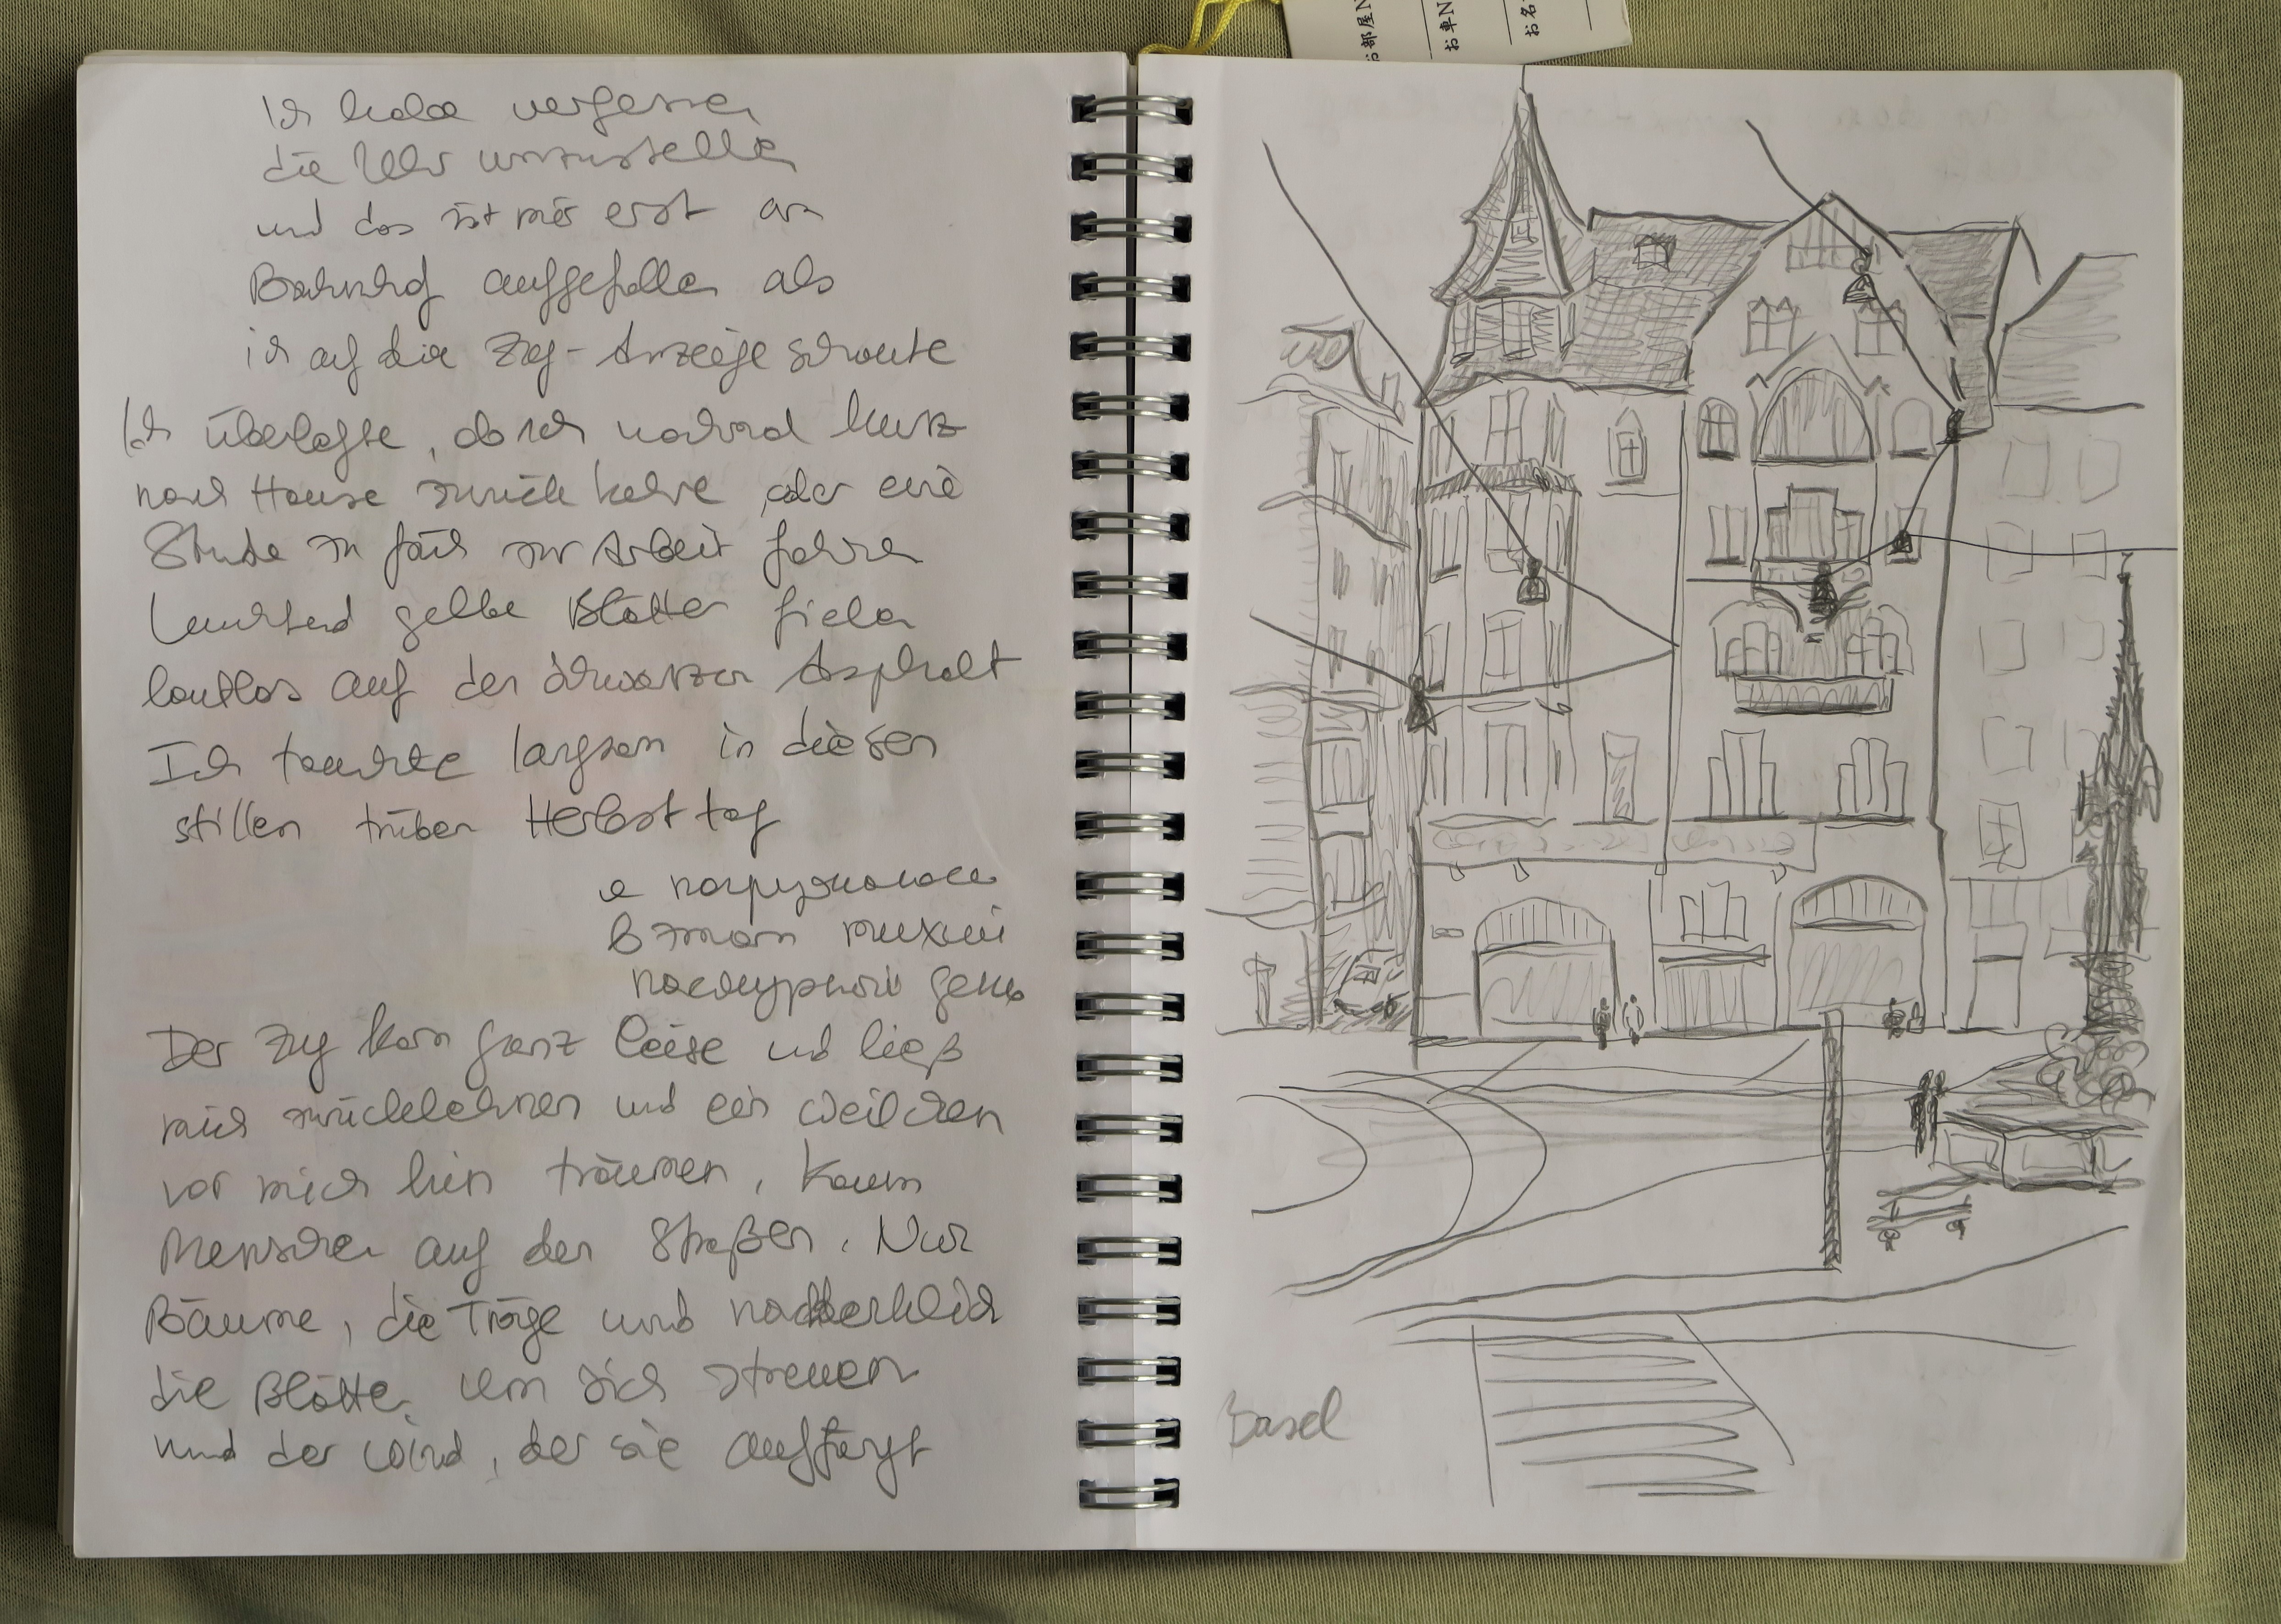 Ich habe vergessen
die Uhr umzustellen
und das ist mir erst am
Bahnhof aufgefallen als
ich auf die Zug-Anzeige schaute
Ich überlegte, ob ich nochmal kurz
nach Hause zurück kehre oder eine
Stunde zu früh zur Arbeit fahre
Leuchtend gelbe Blätter fielen
lautlos auf den schwarzen Asphalt
Ich tauchte langsam in diesen
stillen trüben Herbsttag
я погружалась
в этот тихий
пасмурный день
Der Zug kam ganz leise und ließ
mich zurücklehnen und ein Weilchen
vor mich hin träumen, Kaum
Menschen auf den Straßen. Nur
Bäume, die Träge und
die Blätter um sich streuen
und der Wind, der sie auffängt
Basel
お部屋N
お車N
お名